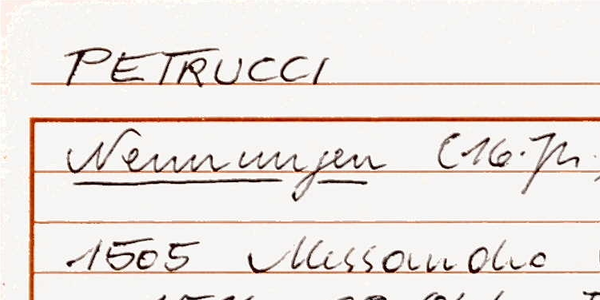 PETRUCCI
Nennungen (16. Jh.
1505 Alessandro